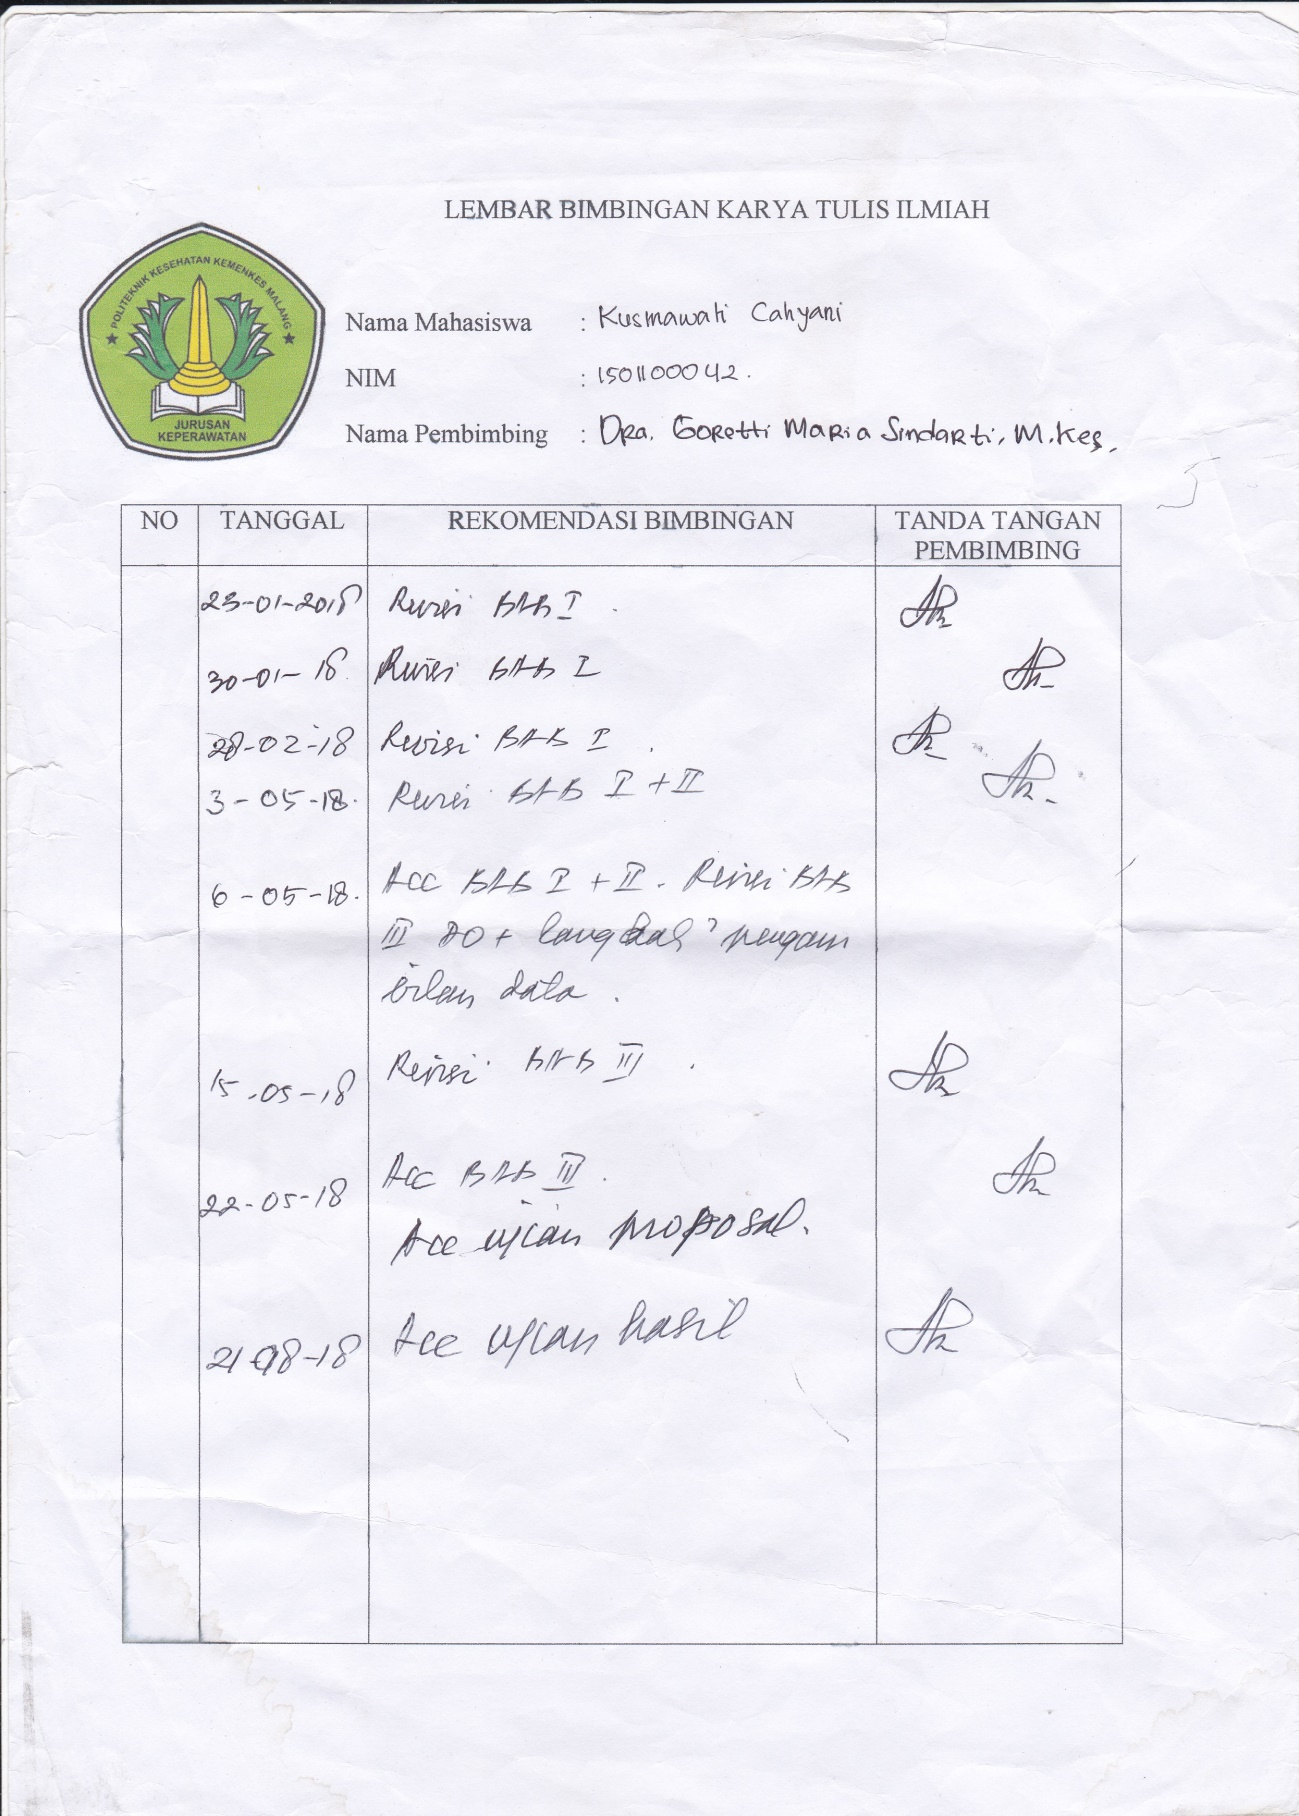 LEMBAR BIMBINGAN KARYA TULIS ILMIAH
POLITEKNIK KESEHATAN KEMENKES MALANG
JURUSAN
KEPERAWATAN
Nama Mahasiswa : Kusmawati Cahyani
NIM : 1501100042.
Nama Pembimbing : Dra. Goretti Maria Sindarti, M.Kes.
NO TANGGAL REKOMENDASI BIMBINGAN TANDA TANGAN
PEMBIMBING
23-01-2018 Revisi BAB I.
30-01-18. Revisi BAB I
28-02-18 Revisi BAB I.
3-05-18. Revisi BAB I + II
6-05-18. Acc BAB I + II. Revisi BAB
III DO + langkah² pengam
bilan data.
15-05-18 Revisi BAB III.
22-05-18 Acc BAB III.
Acc ujian proposal.
21-08-18 Acc ujian hasil